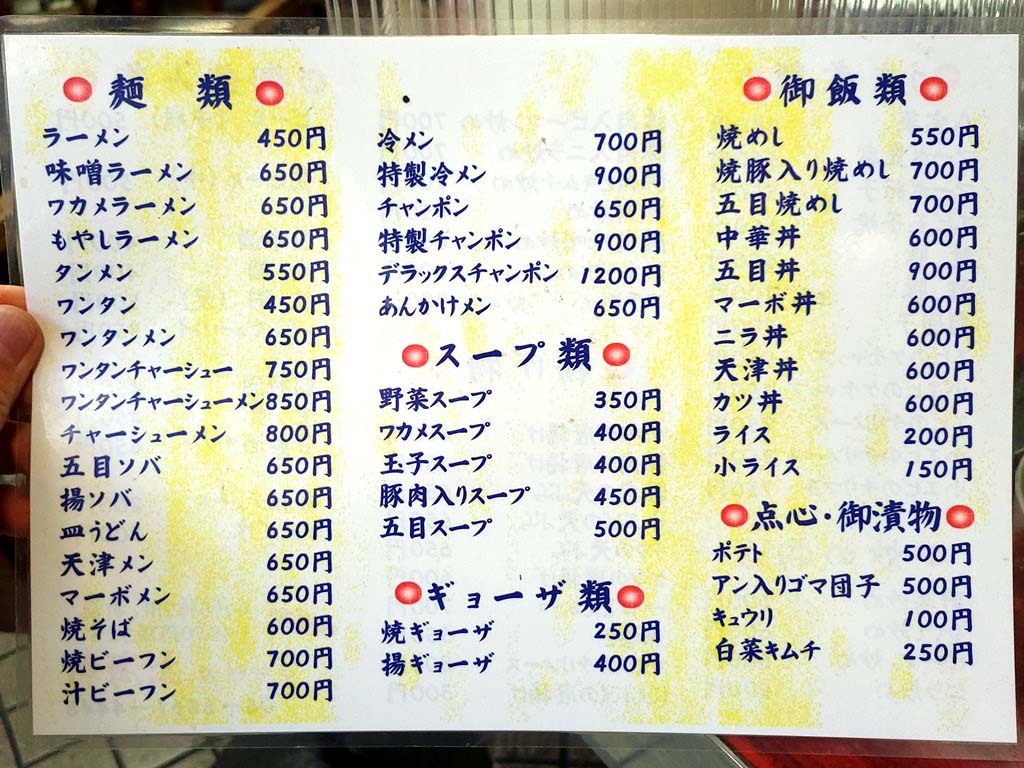 麺類
ラーメン 450円
味噌ラーメン 650円
ワカメラーメン 650円
もやしラーメン 650円
タンメン 550円
ワンタン 450円
ワンタンメン 650円
ワンタンチャーシュー 750円
ワンタンチャーシューメン 850円
チャーシューメン 800円
五目ソバ 650円
揚ソバ 650円
皿うどん 650円
天津メン 650円
マーボメン 650円
焼そば 600円
焼ビーフン 700円
汁ビーフン 700円
冷メン 700円
特製冷メン 900円
チャンポン 650円
特製チャンポン 900円
デラックスチャンポン 1200円
あんかけメン 650円
スープ類
野菜スープ 350円
ワカメスープ 400円
玉子スープ 400円
豚肉入りスープ 450円
五目スープ 500円
ギョーザ類
焼ギョーザ 250円
揚ギョーザ 400円
御飯類
焼めし 550円
焼豚入り焼めし 700円
五目焼めし 700円
中華丼 600円
五目丼 900円
マーボ丼 600円
ニラ丼 600円
天津丼 600円
カツ丼 600円
ライス 200円
小ライス 150円
点心・御漬物
ポテト 500円
アン入りゴマ団子 500円
キュウリ 100円
白菜キムチ 250円